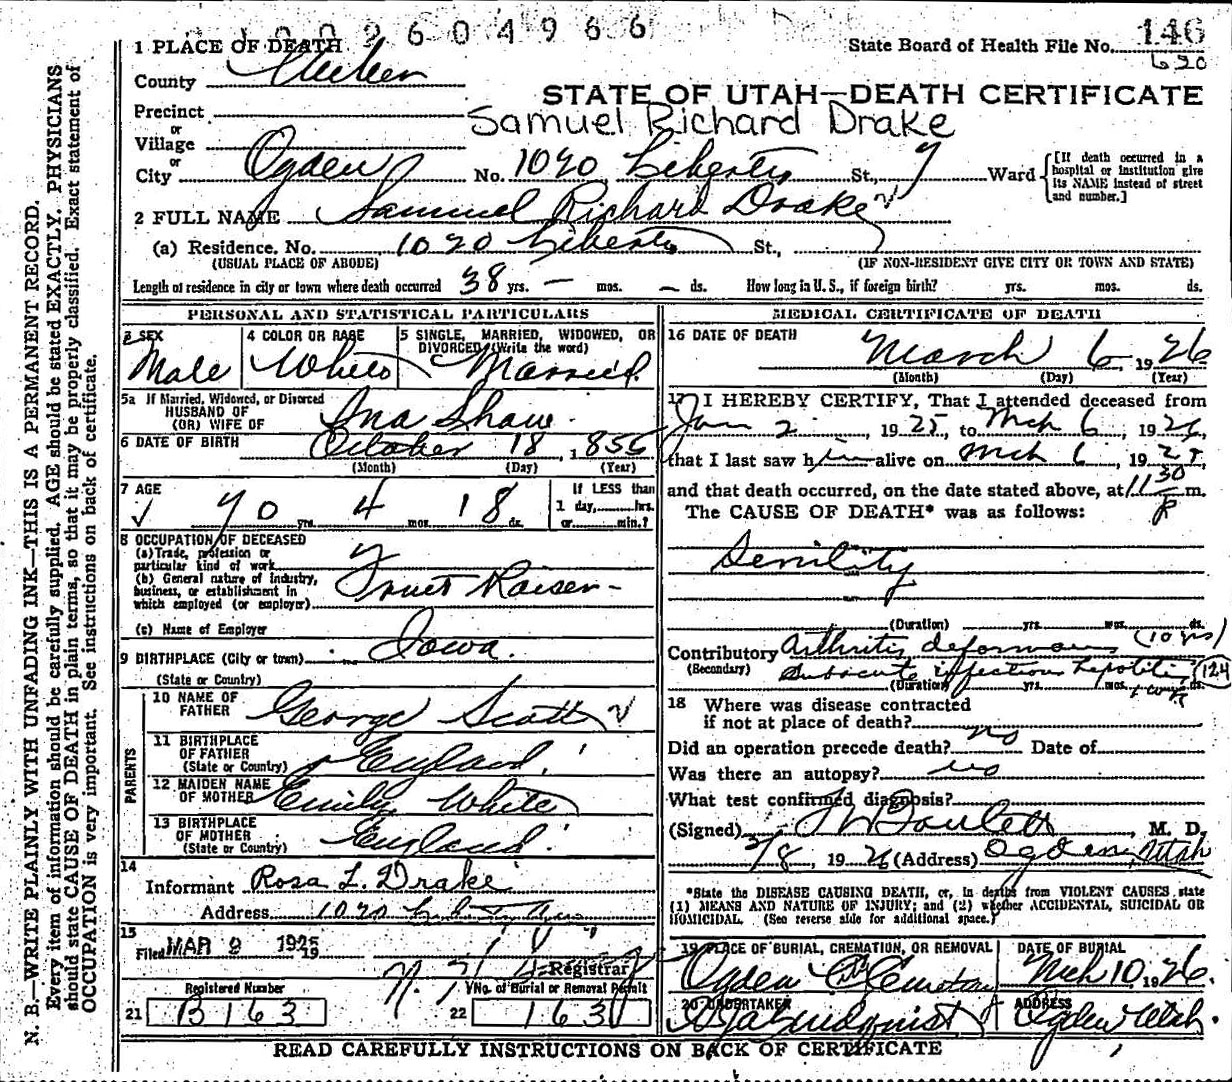 2604966
1 PLACE OF DEATH
State Board of Health File No. 146
620
County
STATE OF UTAH—DEATH CERTIFICATE
Precinct
Samuel Richard Drake
or
Village
or
City Ogden No. 1020 Liberty St., 7 Ward [If death occurred in a hospital or institution give its NAME instead of street and number.]
2 FULL NAME Samuel Richard Drake
(a) Residence. No. 1020 Liberty St.,
(USUAL PLACE OF ABODE) (IF NON-RESIDENT GIVE CITY OR TOWN AND STATE)
Length of residence in city or town where death occurred 38 yrs. — mos. — ds. How long in U. S., if foreign birth? yrs. mos. ds.
PERSONAL AND STATISTICAL PARTICULARS
3 SEX
Male
4 COLOR OR RACE
White
5 SINGLE, MARRIED, WIDOWED, OR
DIVORCED (Write the word)
Married
5a If Married, Widowed, or Divorced
HUSBAND OF
(OR) WIFE OF Ina Shaw
6 DATE OF BIRTH October 18, 1856
(Month) (Day) (Year)
7 AGE
70 yrs. 4 mos. 18 ds.
If LESS than
1 day, hrs.
or min.?
8 OCCUPATION OF DECEASED
(a) Trade, profession or
particular kind of work
(b) General nature of industry,
business, or establishment in
which employed (or employer) Fruit Raiser
(c) Name of Employer
9 BIRTHPLACE (City or town) Iowa.
(State or Country)
PARENTS
10 NAME OF
FATHER George Scott
11 BIRTHPLACE
OF FATHER
(State or Country) England
12 MAIDEN NAME
OF MOTHER Emily White
13 BIRTHPLACE
OF MOTHER
(State or Country) England
14
Informant Rosa L. Drake
Address 1020 Liberty Ave
15
Filed MAR 9 1926
Registrar
Registered Number
21 B163
No. of Burial or Removal Permit
22 163
MEDICAL CERTIFICATE OF DEATH
16 DATE OF DEATH
March 6, 1926
(Month) (Day) (Year)
17 I HEREBY CERTIFY, That I attended deceased from
Jan 2, 1925, to Mch 6, 1926,
that I last saw him alive on Mch 6, 19
and that death occurred, on the date stated above, at 11 30 p m.
The CAUSE OF DEATH* was as follows:
Senility
(Duration) yrs. mos. ds.
Contributory Arthritis deformans (10 yrs)
(Secondary) subacute infectious hepatitis 124
(Duration) yrs. mos. ds.
18 Where was disease contracted
if not at place of death?
Did an operation precede death? no Date of
Was there an autopsy? no
What test confirmed diagnosis?
(Signed) , M. D.
3/8, 1926 (Address) Ogden, Utah
*State the DISEASE CAUSING DEATH, or, in deaths from VIOLENT CAUSES, state
(1) MEANS AND NATURE OF INJURY; and (2) whether ACCIDENTAL, SUICIDAL OR
HOMICIDAL. (See reverse side for additional space.)
19 PLACE OF BURIAL, CREMATION, OR REMOVAL
Ogden City Cemetery
DATE OF BURIAL
Mch 10, 1926.
20 UNDERTAKER
Lindquist
ADDRESS
Ogden Utah.
READ CAREFULLY INSTRUCTIONS ON BACK OF CERTIFICATE
N. B.—WRITE PLAINLY WITH UNFADING INK—THIS IS A PERMANENT RECORD.
Every item of information should be carefully supplied. AGE should be stated EXACTLY. PHYSICIANS
should state CAUSE OF DEATH in plain terms, so that it may be properly classified. Exact statement of
OCCUPATION is very important. See instructions on back of certificate.